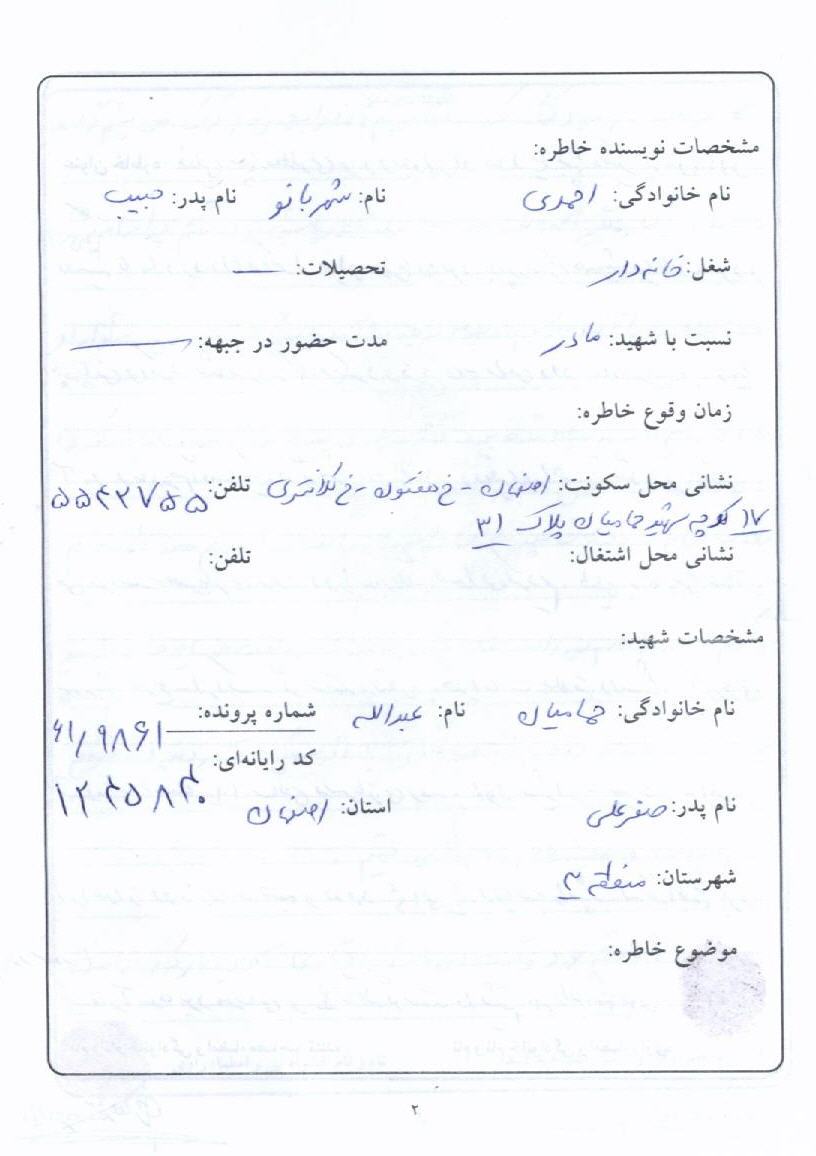 مشخصات نویسنده خاطره:
نام خانوادگی: احمدی نام: شهربانو نام پدر: حبیب
شغل: خانه‌دار تحصیلات: —
نسبت با شهید: مادر مدت حضور در جبهه: —
زمان وقوع خاطره:
نشانی محل سکونت: اصفهان - خ هفتون - خ کلانتری تلفن: ۵۵۴۲۷۵۵
۱۷ کوچه شهید حمامیان پلاک ۳۱
نشانی محل اشتغال: تلفن:
مشخصات شهید:
نام خانوادگی: حمامیان نام: عبدالله شماره پرونده: ۶۱/۹۸۶۱
کد رایانه‌ای: ۱۲۴۵۸۴۰
نام پدر: صفرعلی استان: اصفهان
شهرستان: منطقه ۳
موضوع خاطره:
۲